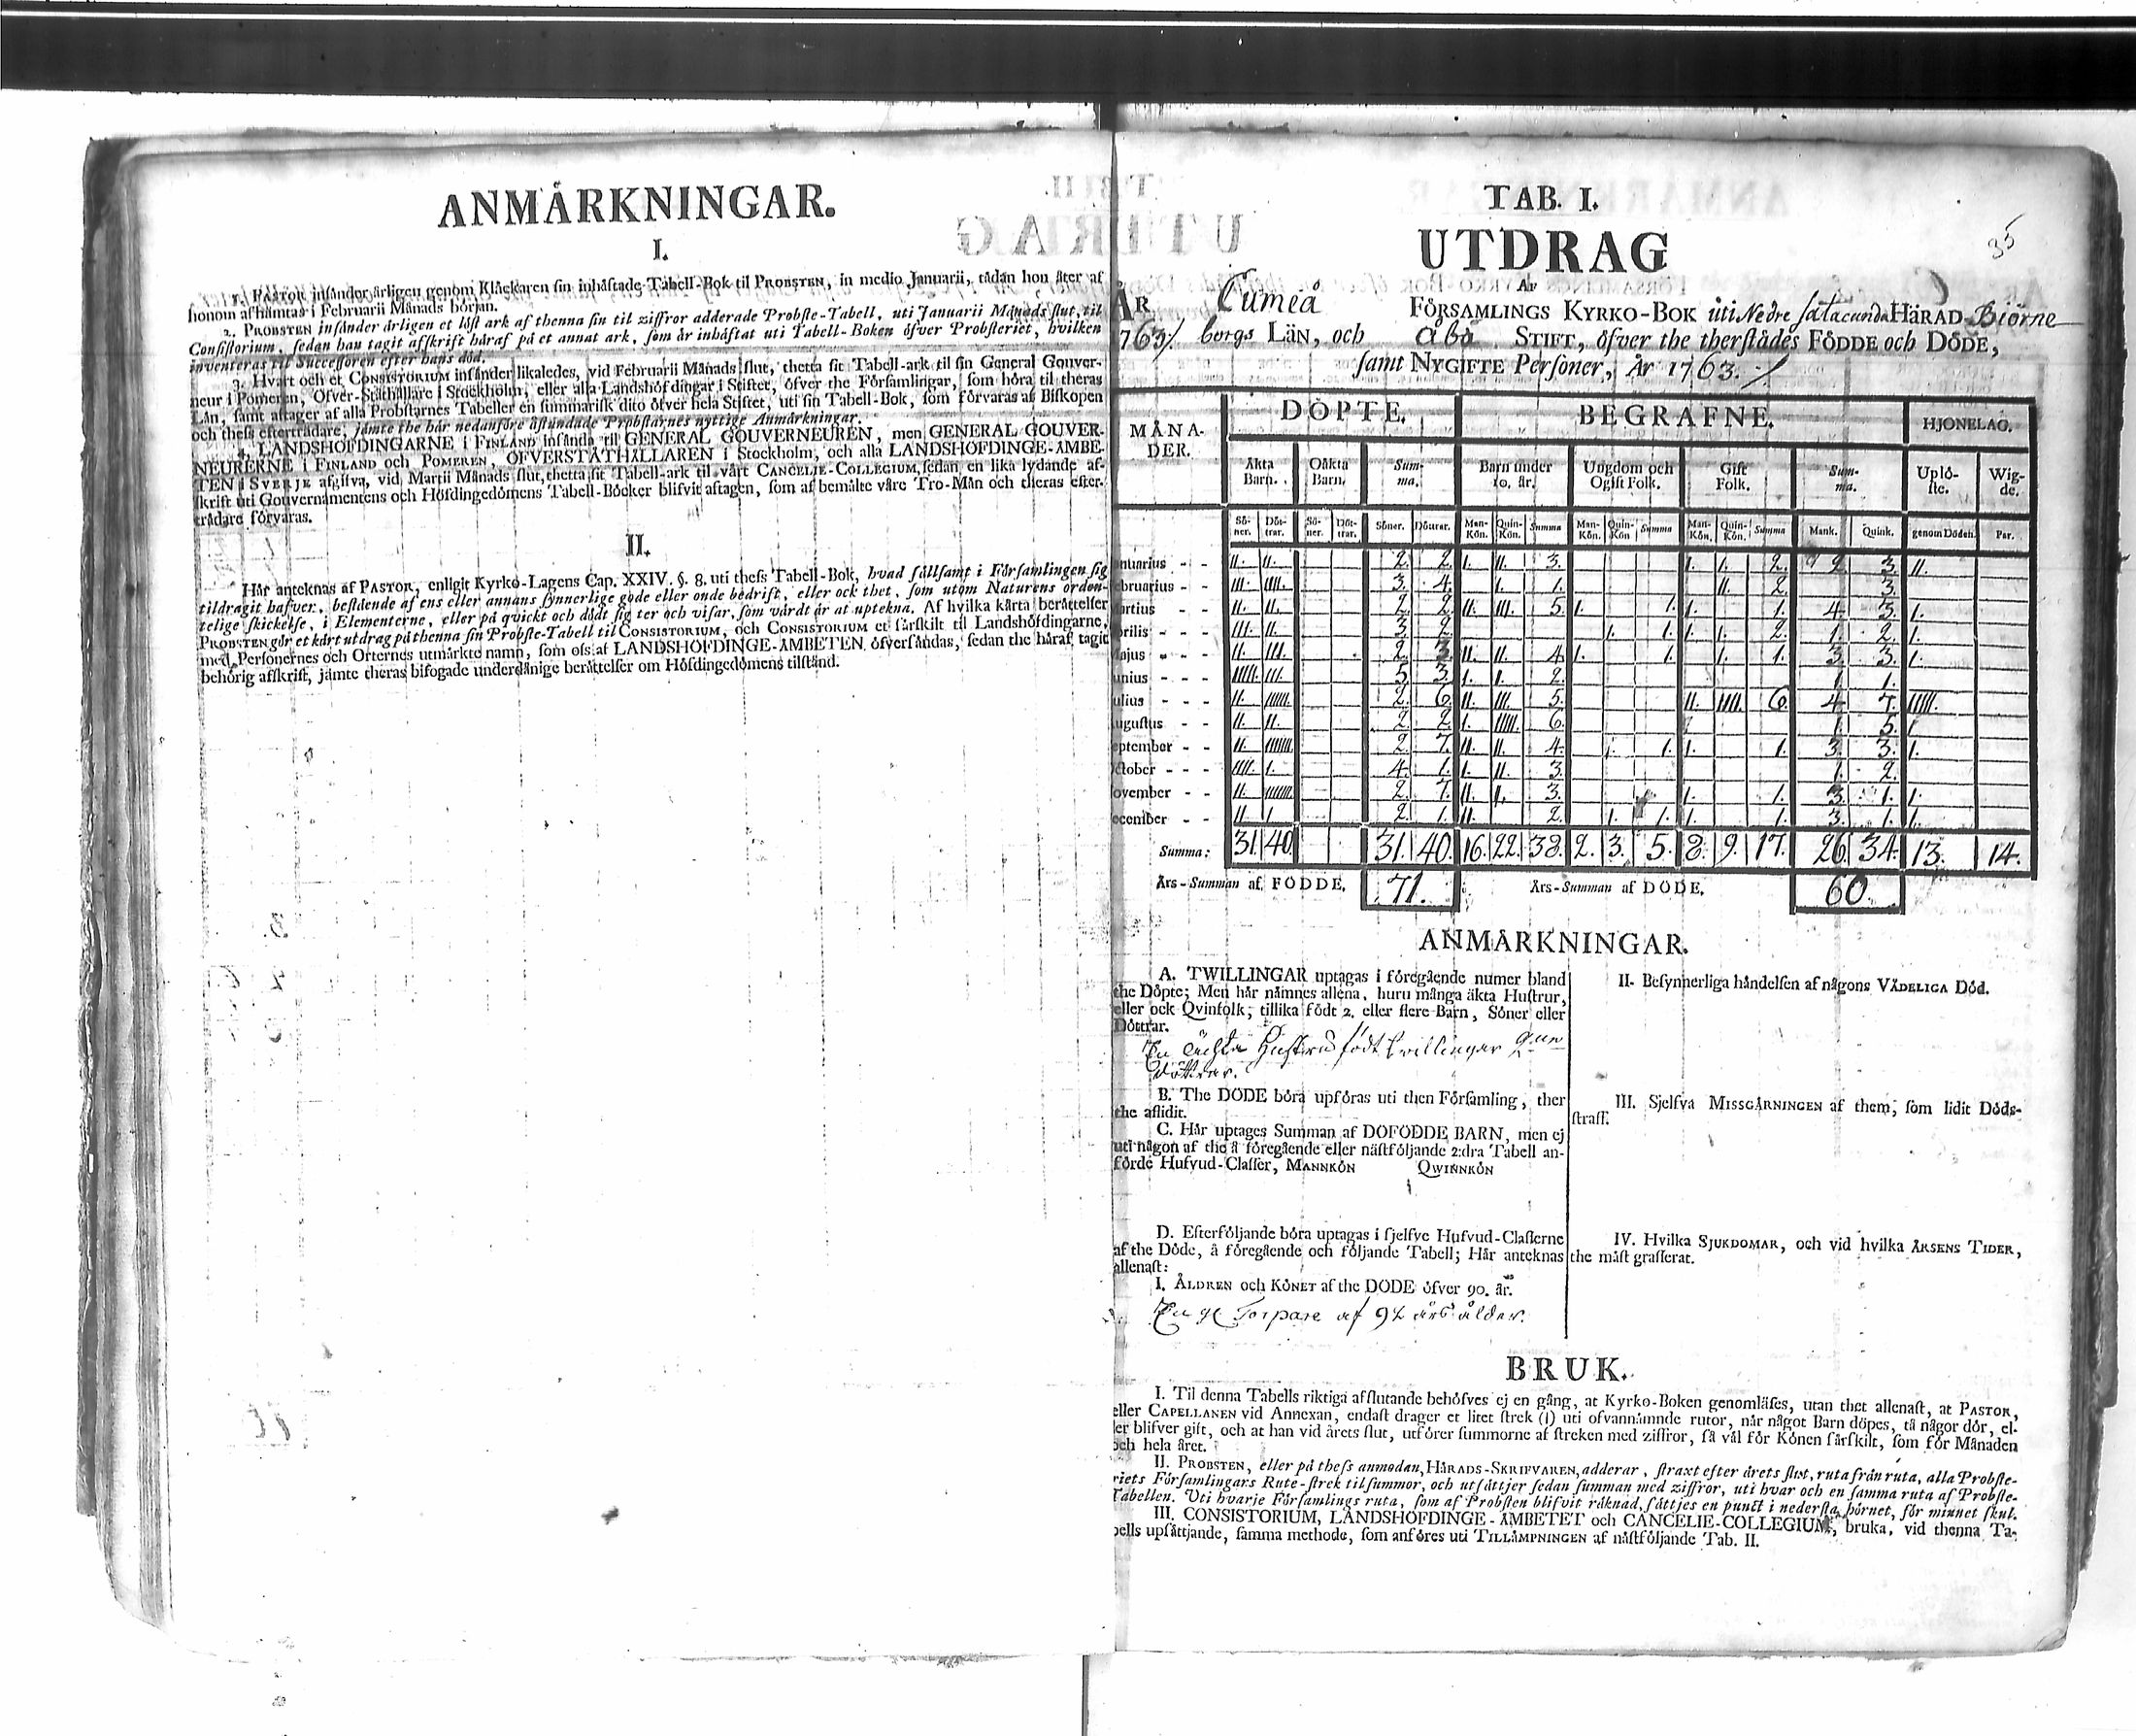 ANMÄRKNINGAR.
I.
1. PASTOR insänder årligen genom Klåckaren sin inhäftade Tabell-Bok til PROBSTEN, in medio Januarii, tådan hon åter af
honom afhämtas i Februarii Månads början.
2. PROBSTEN insänder årligen et löst ark af thenna sin til ziffror adderade Probste-Tabell, uti Januarii Månads slut, til
Consistorium, sedan han tagit afskrift häraf på et annat ark, som är inhäftat uti Tabell-Boken öfver Probsteriet, hvilken
inventeras til Successoren efter hans död.
3. Hvart och et CONSISTORIUM insänder likaledes, vid Februarii Månads slut, thetta sit Tabell-ark til sin General Gouver-
neur i Pomeren, Öfver-Ståthållare i Stockholm, eller alla Landshöfdingar i Stiftet, öfver the Församlingar, som höra til theras
Län, samt aftager af alla Probstarnes Tabeller en summarisk dito öfver hela Stiftet, uti sin Tabell-Bok, som förvaras af Biskopen
och thess efterträdare, jämte the här nedanföre åstundade Probstarnes nyttige Anmärkningar.
4. LANDSHÖFDINGARNE i FINLAND insända til GENERAL GOUVERNEUREN, men GENERAL GOUVER-
NEURERNE i FINLAND och POMEREN, ÖFVERSTÅTHÅLLAREN i Stockholm, och alla LANDSHÖFDINGE-ÄMBE-
TEN i SVERJE afgifva, vid Martii Månads slut, thetta sit Tabell-ark til vårt CANCELIE-COLLEGIUM, sedan en lika lydande af-
skrift uti Gouvernamentens och Höfdingedömens Tabell-Böcker blifvit aftagen, som af bemälte våre Tro-Män och theras efter-
trädare förvaras.
II.
Här anteknas af PASTOR, enligit Kyrko-Lagens Cap. XXIV. §. 8. uti thess Tabell-Bok, hvad sällsamt i Församlingen sig
tildragit hafver, bestående af ens eller annans synnerlige gode eller onde bedrift, eller ock thet, som utom Naturens orden-
telige skickelse, i Elementerne, eller på qvickt och dödt sig ter och visar, som värdt är at uptekna. Af hvilka kårta berättelser
PROBSTEN gör et kårt utdrag på thenna sin Probste-Tabell til CONSISTORIUM, och CONSISTORIUM et särskilt til Landshöfdingarne,
med Personernes och Orternes utmärkte namn, som oss af LANDSHÖFDINGE-ÄMBETEN öfversändas, sedan the häraf tagit
behörig afskrift, jämte theras bifogade underdånige berättelser om Höfdingedömens tilstånd.
35
TAB. I.
UTDRAG
Af
ÅR Cumeå FÖRSAMLINGS KYRKO-BOK uti Nedre Satacunda HÄRAD Biörne
763 borgs LÄN, och Åbo STIFT, öfver the therstädes FÖDDE och DÖDE,
samt NYGIFTE Personer, År 1763.
MÅNA-DER. DÖPTE. BEGRAFNE. HJONELAG.
Äkta Barn. Oäkta Barn. Sum-ma. Barn under 10. år. Ungdom och Ogift Folk. Gift Folk. Sum-ma. Uplö-ste. Wig-de.
Sö-ner. Döt-trar. Sö-ner. Döt-trar. Söner. Döttrar. Man-Kön. Quin-Kön. Summa Man-Kön. Quin-Kön Summa Man-Kön. Quin-Kön. Summa Mank. Quink. genom Döden. Par.
nuarius - - II. II. 2. 2. I. II. 3. I. I. 2. 2. 3. II.
ebruarius - III. IIII. 3. 4. I. 1. II. 2. 3.
artius - - II. II. 2. 2. II. III. 5. I. 1. I. 1. 4. 3. I.
prilis - - III. II. 3. 2. I. 1. I. I. 2. 1. 2. I.
Majus - - II. III. 2. 3. II. II. 4. I. 1. I. 1. 3. 3. I.
unius - - - IIIII. III. 5. 3. I. I. 2. 1. 1.
ulius - - - II. IIIIII. 2. 6. II. III. 5. II. IIII. 6. 4. 7. IIIII.
ugustus - - II. II. 2. 2. I. IIIII. 6. 1. 5. I.
eptember - - II. IIIIIII. 2. 7. II. II. 4. I. 1. I. 1. 3. 3. I.
ctober - - - IIII. I. 4. 1. I. II. 3. 1. 2.
ovember - - II. IIIIIII. 2. 7. II. I. 3. I. 1. 3. 1. I.
ecember - - II. I 2. 1. II. 2. I. 1. I. 1. 3. 1. I.
Summa: 31. 40. 31. 40. 16. 22. 38. 2. 3. 5. 8. 9. 17. 26. 34. 13. 14.
Års-Summan af FÖDDE, 71. Års-Summan af DÖDE, 60.
ANMÄRKNINGAR.
A. TWILLINGAR uptagas i föregående numer bland
the Döpte; Men här nämnes allena, huru många äkta Hustrur,
eller ock Qvinfolk, tillika födt 2. eller flere Barn, Söner eller
Döttrar.
En Ächta Hustru födt tvillingar
döttrar.
B. The DÖDE böra upföras uti then Församling, ther
the aflidit.
C. Här uptages Summan af DÖFÖDDE BARN, men ej
uti någon af the å föregående eller nästföljande 2:dra Tabell an-
förde Hufvud-Classer, MANNKÖN QWINNKÖN
D. Efterföljande böra uptagas i sjelfve Hufvud-Classerne
af the Döde, å föregående och följande Tabell; Här anteknas
allenast:
I. ÅLDREN och KÖNET af the DÖDE öfver 90. år.
En gl Torpare af 92 års ålder.
II. Besynnerliga händelsen af någons VÅDELIGA Död.
III. Sjelfva MISSGÄRNINGEN af them, som lidit Döds-
straff.
IV. Hvilka SJUKDOMAR, och vid hvilka ÅRSENS TIDER,
the mäst grasserat.
BRUK.
I. Til denna Tabells riktiga afslutande behöfves ej en gång, at Kyrko-Boken genomläses, utan thet allenast, at PASTOR,
eller CAPELLANEN vid Annexan, endast drager et litet strek (I) uti ofvannämnde rutor, når något Barn döpes, tå någor dör, el-
ler blifver gift, och at han vid årets slut, utförer summorne af streken med ziffror, så väl för Könen särskilt, som för Månaden
och hela året.
II. PROBSTEN, eller på thess anmodan, HÄRADS-SKRIFVAREN, adderar, straxt efter årets slut, ruta från ruta, alla Probste-
riets Församlingars Rute-strek tilsummor, och utsättjer sedan summan med ziffror, uti hvar och en samma ruta af Probste-
Tabellen. Uti hvarje Församlings ruta, som af Probsten blifvit räknad, sättjes en punct i nedersta hörnet, för minnet skul.
III. CONSISTORIUM, LANDSHÖFDINGE-ÄMBETET och CANCELIE-COLLEGIUM, bruka, vid thenna Ta-
bells upsättjande, samma methode, som anföres uti TILLÄMPNINGEN af nästföljande Tab. II.